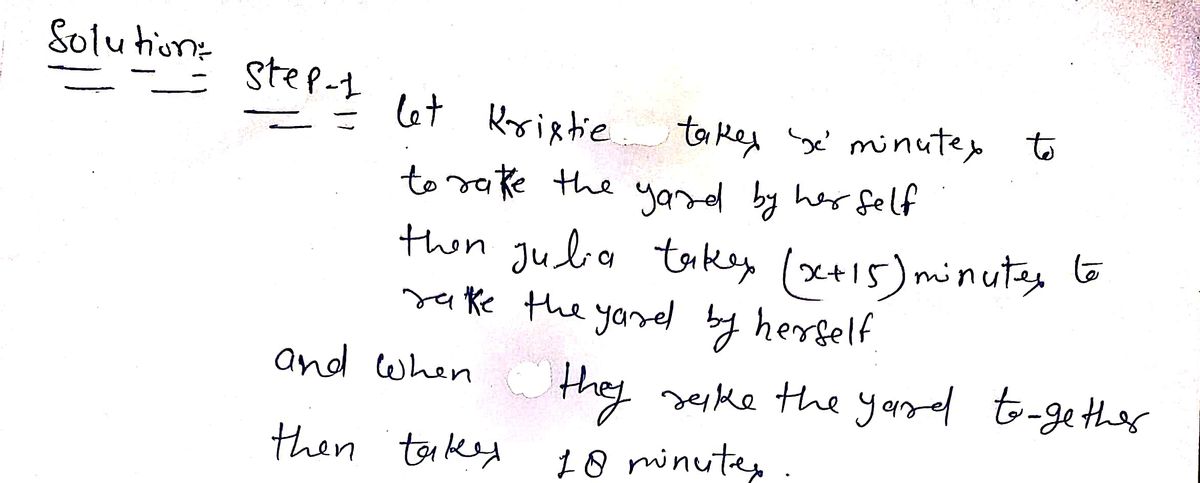 Solution:-
Step-1
let Kristie takes 'x' minutes to
to rake the yard by her self
then Julia takes (x+15) minutes to
rake the yard by herself
and when they rake the yard to-gether
then takes 10 minutes.